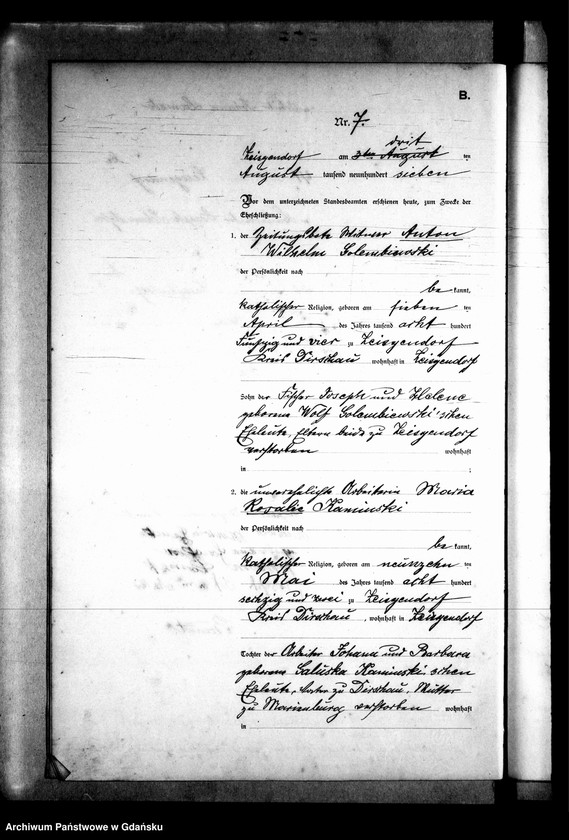 B.
Nr. 7.
drit
Zeisgendorf am 3ten August ten
August tausend neunhundert sieben
Vor dem unterzeichneten Standesbeamten erschienen heute, zum Zwecke der
Eheschließung:
1. der Zeitungsbote Witwer Anton
Wilhelm Golembiewski
der Persönlichkeit nach
be kannt,
katholischer Religion, geboren am sieben ten
April des Jahres tausend acht hundert
Fünfzig und vier zu Zeisgendorf
Kreis Dirschau wohnhaft in Zeisgendorf
Sohn der Fischer Joseph und Helene
geborene Wolf Golembiewski'schen
Eheleute, Eltern beide zu Zeisgendorf
verstorben wohnhaft
in ;
2. die unverehelichte Arbeiterin Maria
Rosalie Kaminski
der Persönlichkeit nach
be kannt,
katholischer Religion, geboren am neunzehn ten
Mai des Jahres tausend acht hundert
sechzig und zwei zu Zeisgendorf
Kreis Dirschau, wohnhaft in Zeisgendorf
Tochter der Arbeiter Johann und Barbara
geborene Kaminski'schen
Eheleute, Vater zu Dirschau, Mutter
zu Marienburg verstorben wohnhaft
in
Archiwum Państwowe w Gdańsku